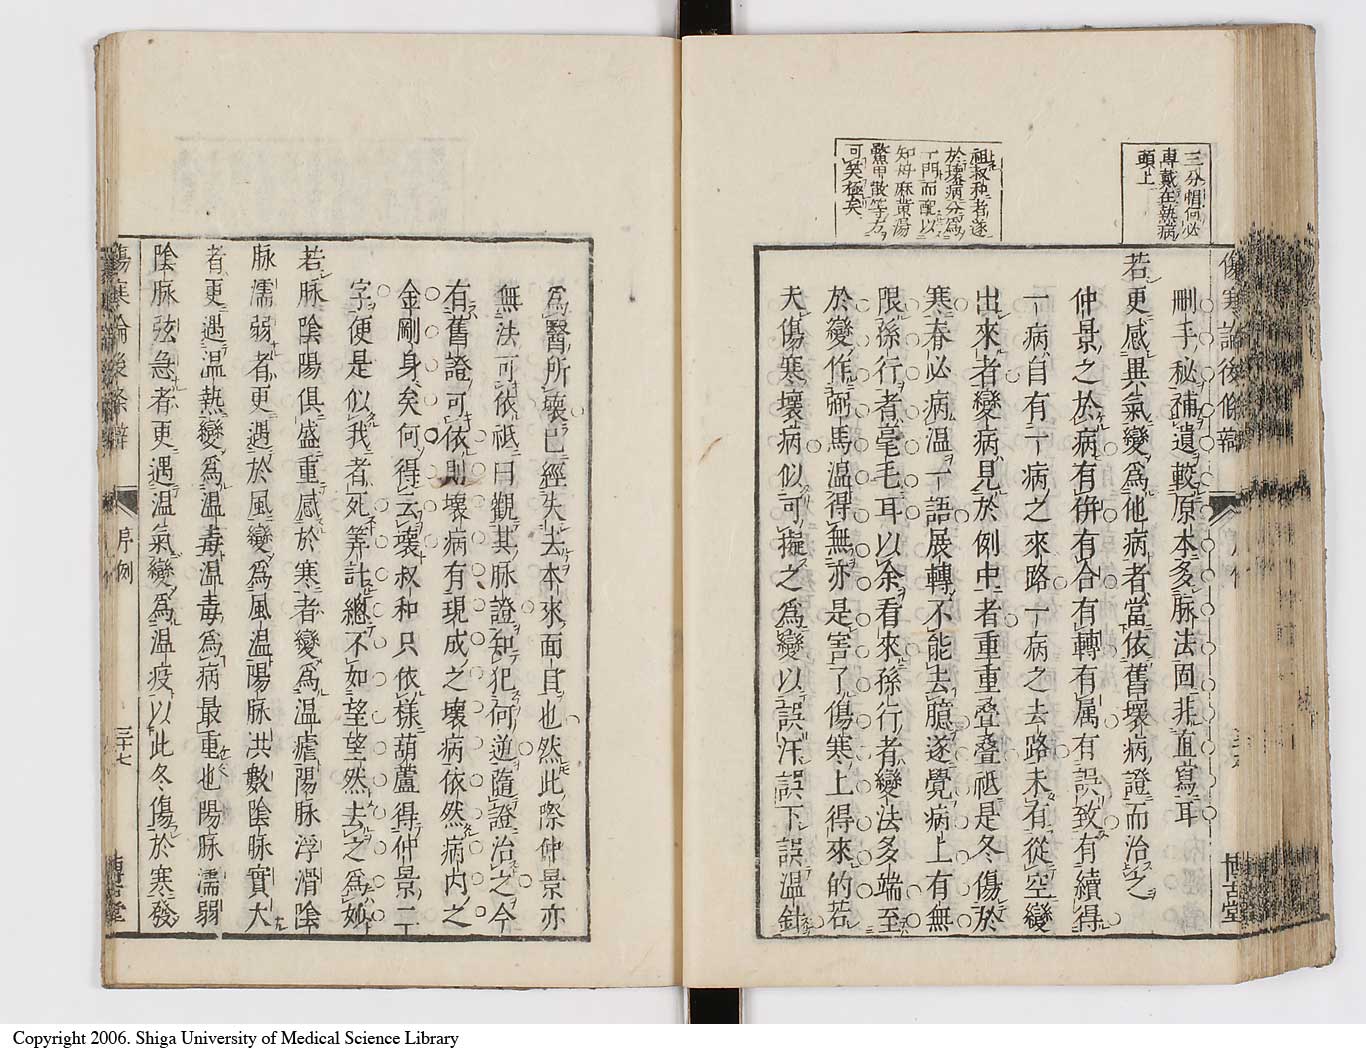 三分帽何必
専戴在熱病
頭上
祖叔和者遂
於壞病分爲
一門而配以
知母麻黄湯
鱉甲散等方
可笑極矣
刪手秘補遺較原本多脉法固非直寫耳
若更感異氣變爲他病者當依舊壞病證而治之
仲景之於病有併有合有轉有属有誤致有續得
一病自有一病之來路一病之去路未有從空變
出來者變病見於例中者重重叠叠祗是冬傷於
寒春必病温一語展轉不能去臆遂覺病上有無
限孫行者毫毛耳以余看來孫行者變法多端至
於變作弼馬温得無亦是害了傷寒上得來的若
夫傷寒壞病似可擬之爲變以誤汗誤下誤温針
博古堂
爲醫所壞已經失去本來面目也然此際仲景亦
無法可依祗曰觀其脉證知犯何逆隨證治之今
有舊證可依則壞病有現成之壞病依然病内之
金剛身矣何得云壞叔和只依樣葫蘆得仲景二
字便是似我者死筭計總不如望望然去之爲妙
若脉陰陽俱盛重感於寒者變爲温瘧陽脉浮滑陰
脉濡弱者更遇於風變爲風温陽脉洪數陰脉實大
者更遇温熱變爲温毒温毒爲病最重也陽脉濡弱
陰脉弦急者更遇温氣變爲温疫以此冬傷於寒發
傷寒論後條辯
序例
三十七
博古堂
Copyright 2006. Shiga University of Medical Science Library